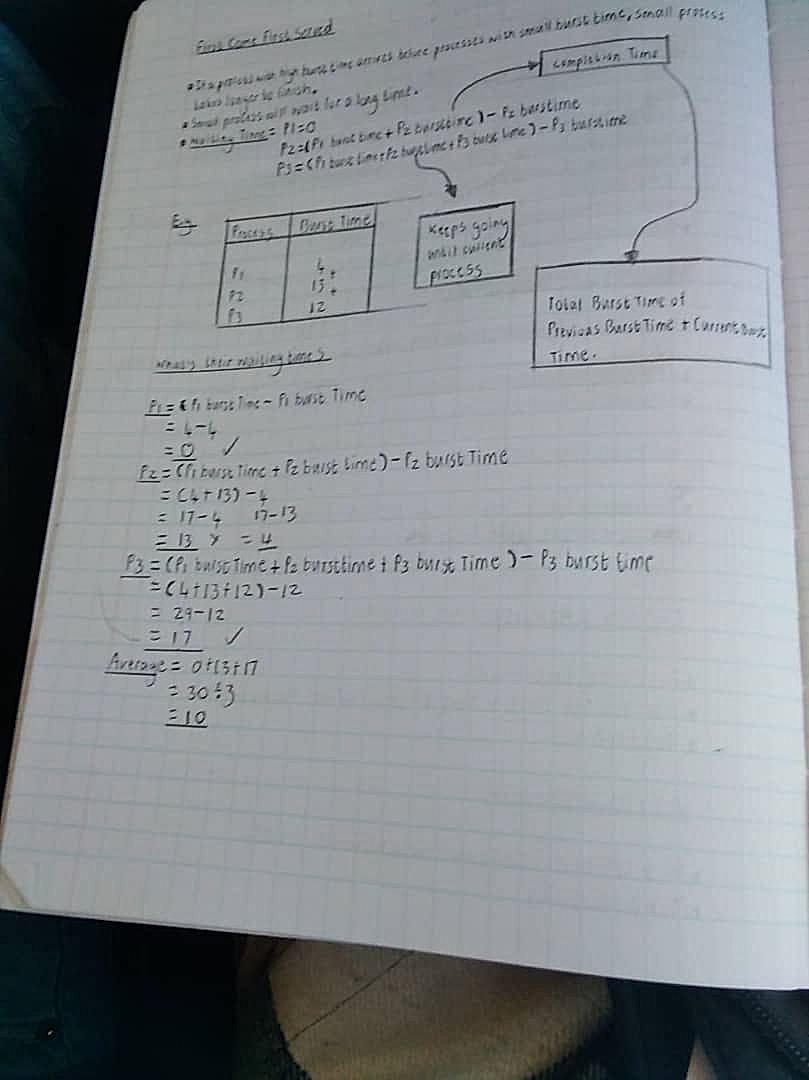 First Come First Served
• If a process with high burst time arrives before processes with small burst time, small process
takes longer to finish.
• Small process will wait for a long time.
• Waiting Time = P1=0
P2=(P1 burst time + P2 bursttime) - P2 burstime
P3=(P1 burst time + P2 burst time + P3 burst time) - P3 burstime
Completion Time
Keeps going
until current
process
Total Burst Time of
Previous Burst Time + Current Burst
Time.
Eg
Process Burst Time
P1 4 +
P2 13 +
P3 12
What's their waiting times
P1 = (P1 burst Time - P1 burst Time
= 4-4
= 0 ✓
P2 = (P1 burst Time + P2 burst time) - P2 burst Time
= (4+13) - 4
= 17-4 17-13
= 13 x = 4
P3 = (P1 burst Time + P2 bursttime + P3 burst Time) - P3 burst time
= (4+13+12) - 12
= 29-12
= 17 ✓
Average = 0+13+17
= 30÷3
= 10